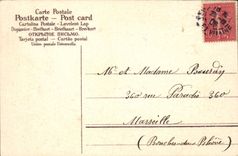 Carte Postale
Postkarte — Post card
Cartolina Postale — Levelezö Lap
Dopisnice — Brefkort — Briefkaart — Brevkort
ОТКРЫТОЕ ПИСЬМО.
Tarjeta postal — Cartão postal
Union postale Universelle.
Mr et Madame Bourdin
360 rue Paradis 360
Marseille
(Bouches du Rhône)